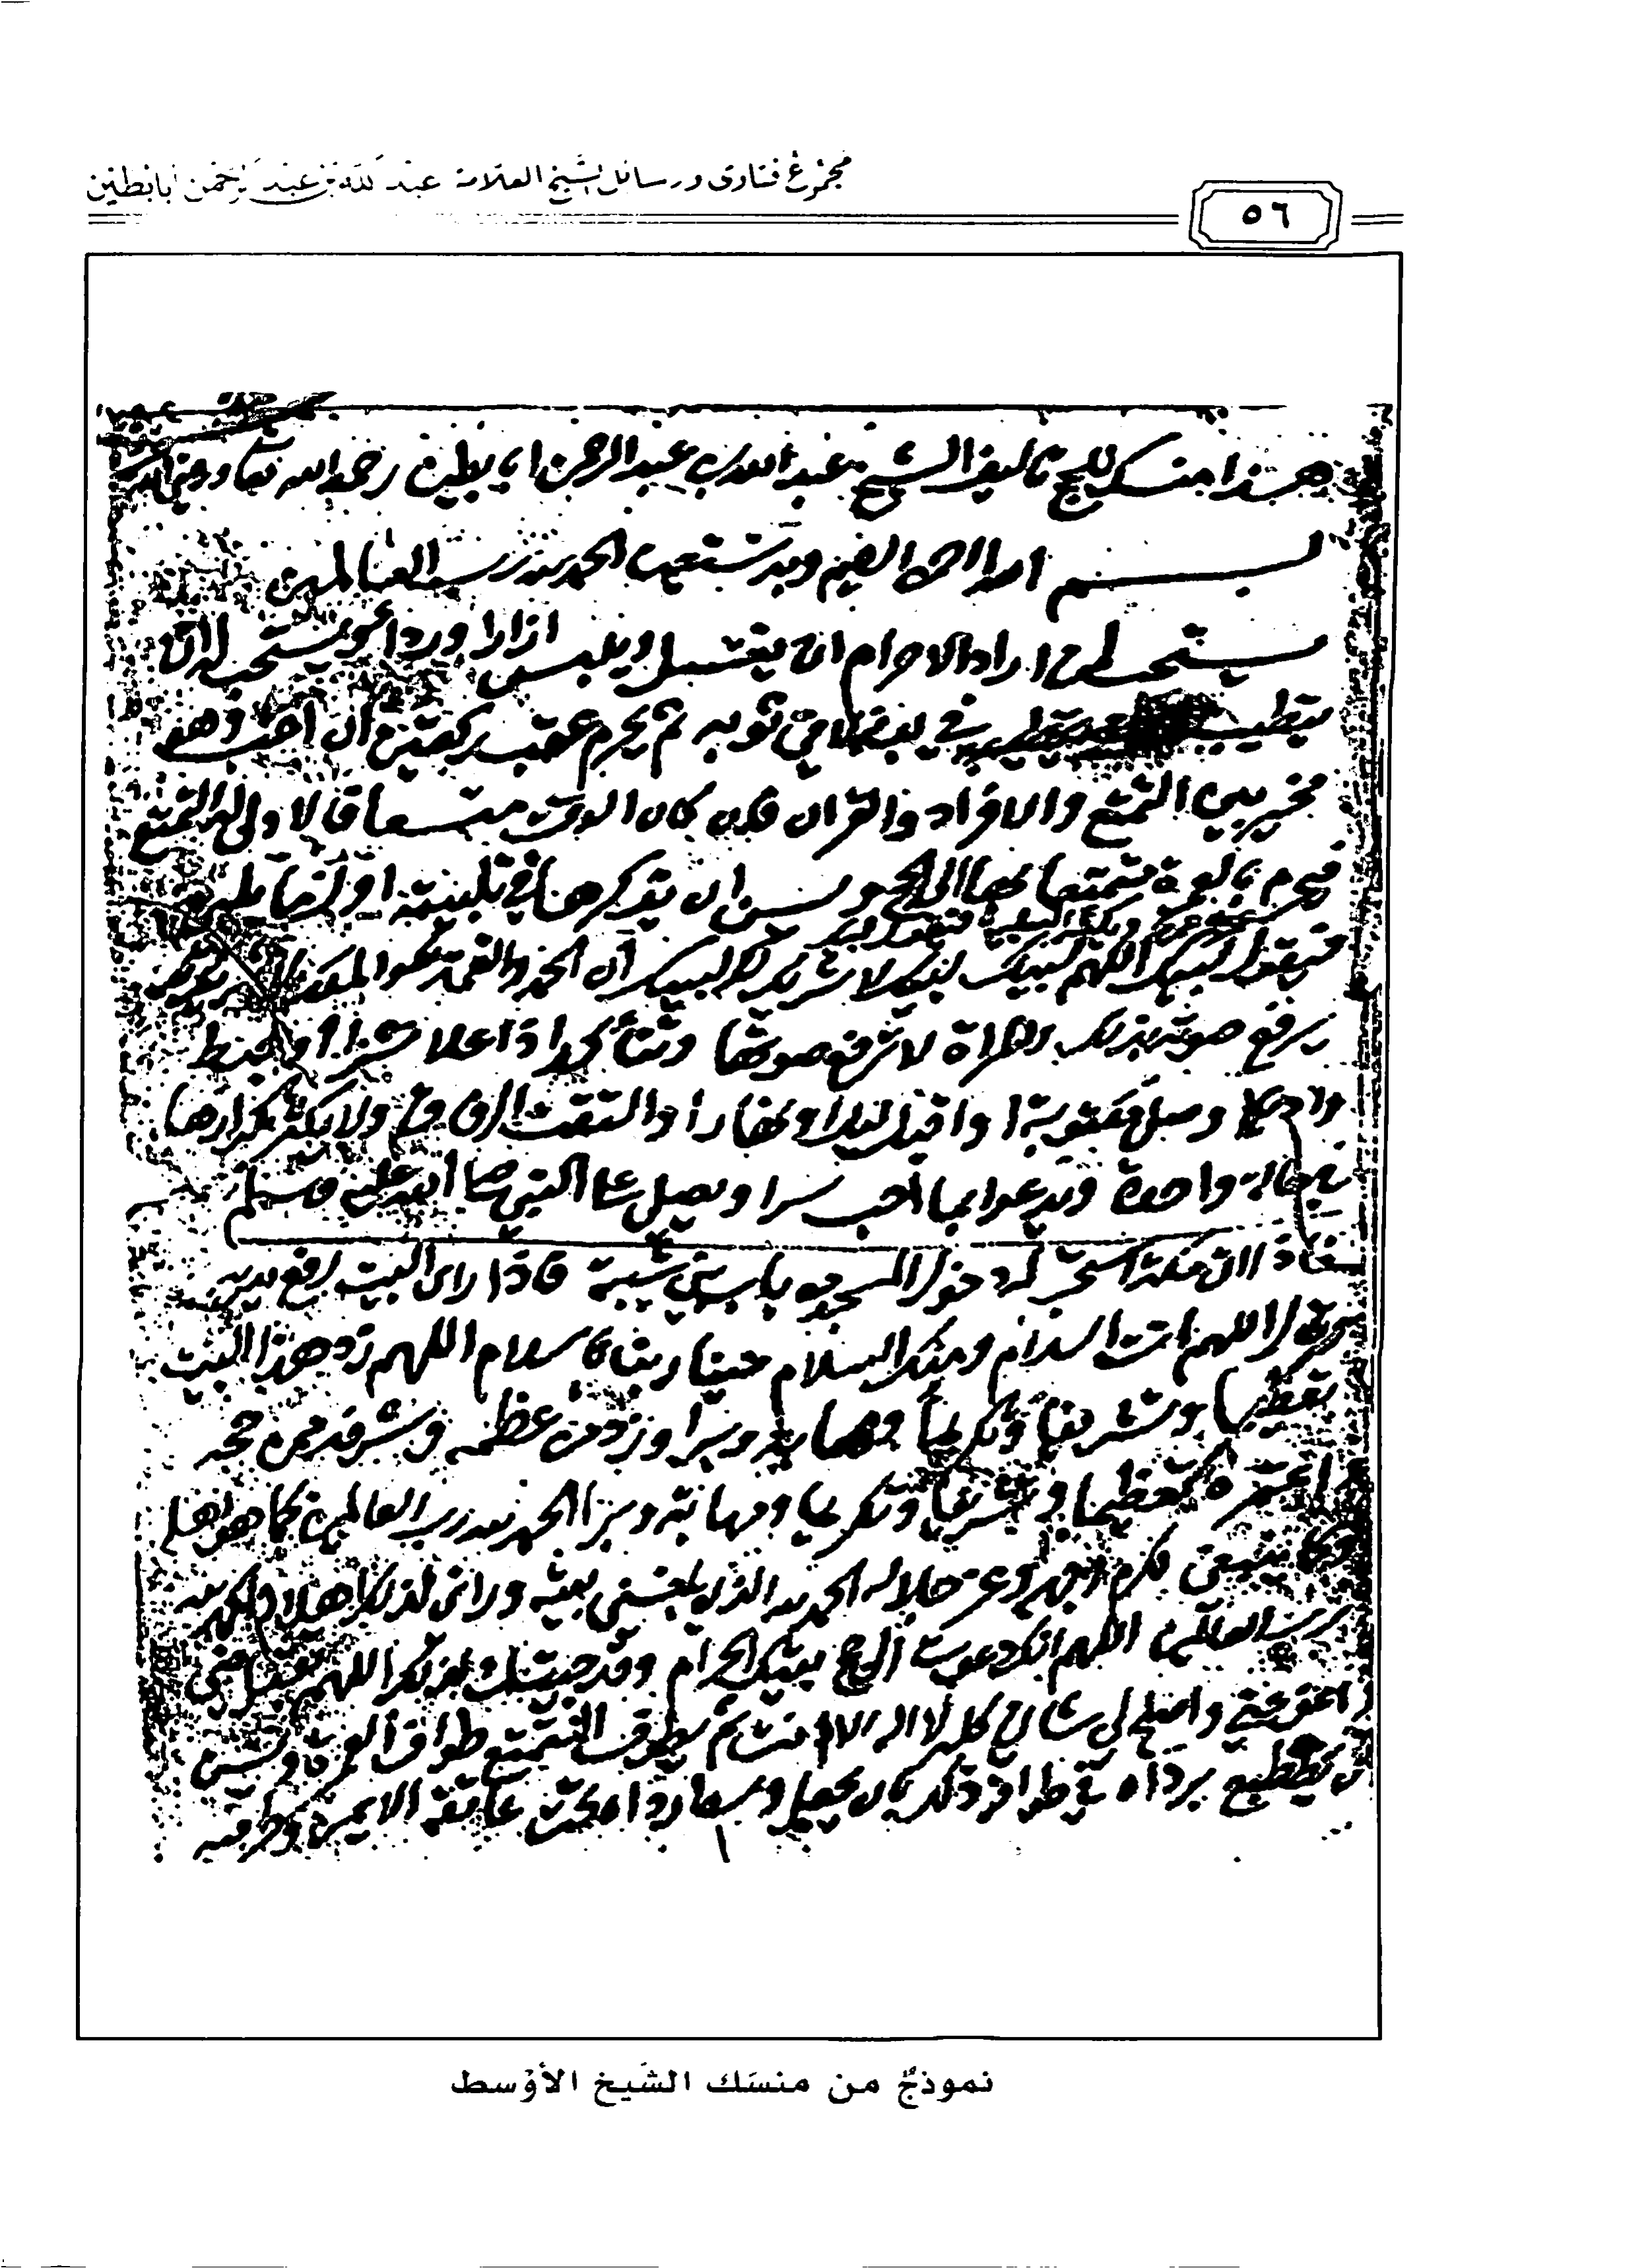 مجموع فتاوى ورسائل الشيخ العلامة عبد الله بن عبد الرحمن أبابطين
٥٦
هذا منسك للحج تأليف الشيخ عبد الله بن عبد الرحمن ابابطين رحمه الله تعا
بسم الله الرحمن الرحيم وبه نستعين الحمد لله رب العالمين
يستحب لمن اراد الاحرام ان يغتسل ويلبس ازارا وردا ويستحب له ان
يتطيب في بدنه ثوبه ثم يحرم عقب ركعتين ان احب وهو
مخير بين التمتع والافراد والقران فان كان الوقت متسعا فالاولى له التمتع
فيحرم بالعمرة متمتعا بها الى الحج ويسن ان يذكرها في تلبيته اول
فيقول لبيك اللهم لبيك لبيك لا شريك لك لبيك ان الحمد والنعمة لك والملك
يرفع صوته بذلك والمراة لا ترفع صوتها وتتأكد اذا علا نشزا او هبط
واديا وصلى مكتوبة او اقبل ليلا ونهارا والتقت الرفاق ولا يكثر تكرارها
في حالة واحدة ويدعوا بما أحب سرا ويصلي علا النبي صلا الله عليه وسلم
فاذا اتى مكة استحب له دخول المسجد باب بني شيبة فاذا راى البيت رفع يديه
اللهم انت السلام ومنك السلام حينا ربنا بالسلام اللهم زد هذا البيت
تعظيما وتشريفا وتكريما ومهابة وبرا وزد من عظمه وشرفه ممن حجه
واعتمره تعظيما وتشريفا وتكريما ومهابة وبرا الحمد لله رب العالمين كما هو اهله
وكما ينبغي لكرم وجهه وعز جلاله الحمد لله الذي بلغني بيته وراني لذلك اهلا والحمد لله
رب العالمين اللهم انك دعوت الى حج بيتك الحرام وقد جيتك لذلك اللهم تقبل مني
واعف عني واصلح لي شاني كله لا اله الا انت ثم يطوف المتمتع طواف العمرة ويسن
ان يضطبع برداه في طوافه ذلك بان يجعل وسط رداه تحت عاتقه الايمن وطرفيه
نموذج من منسك الشيخ الأوسط